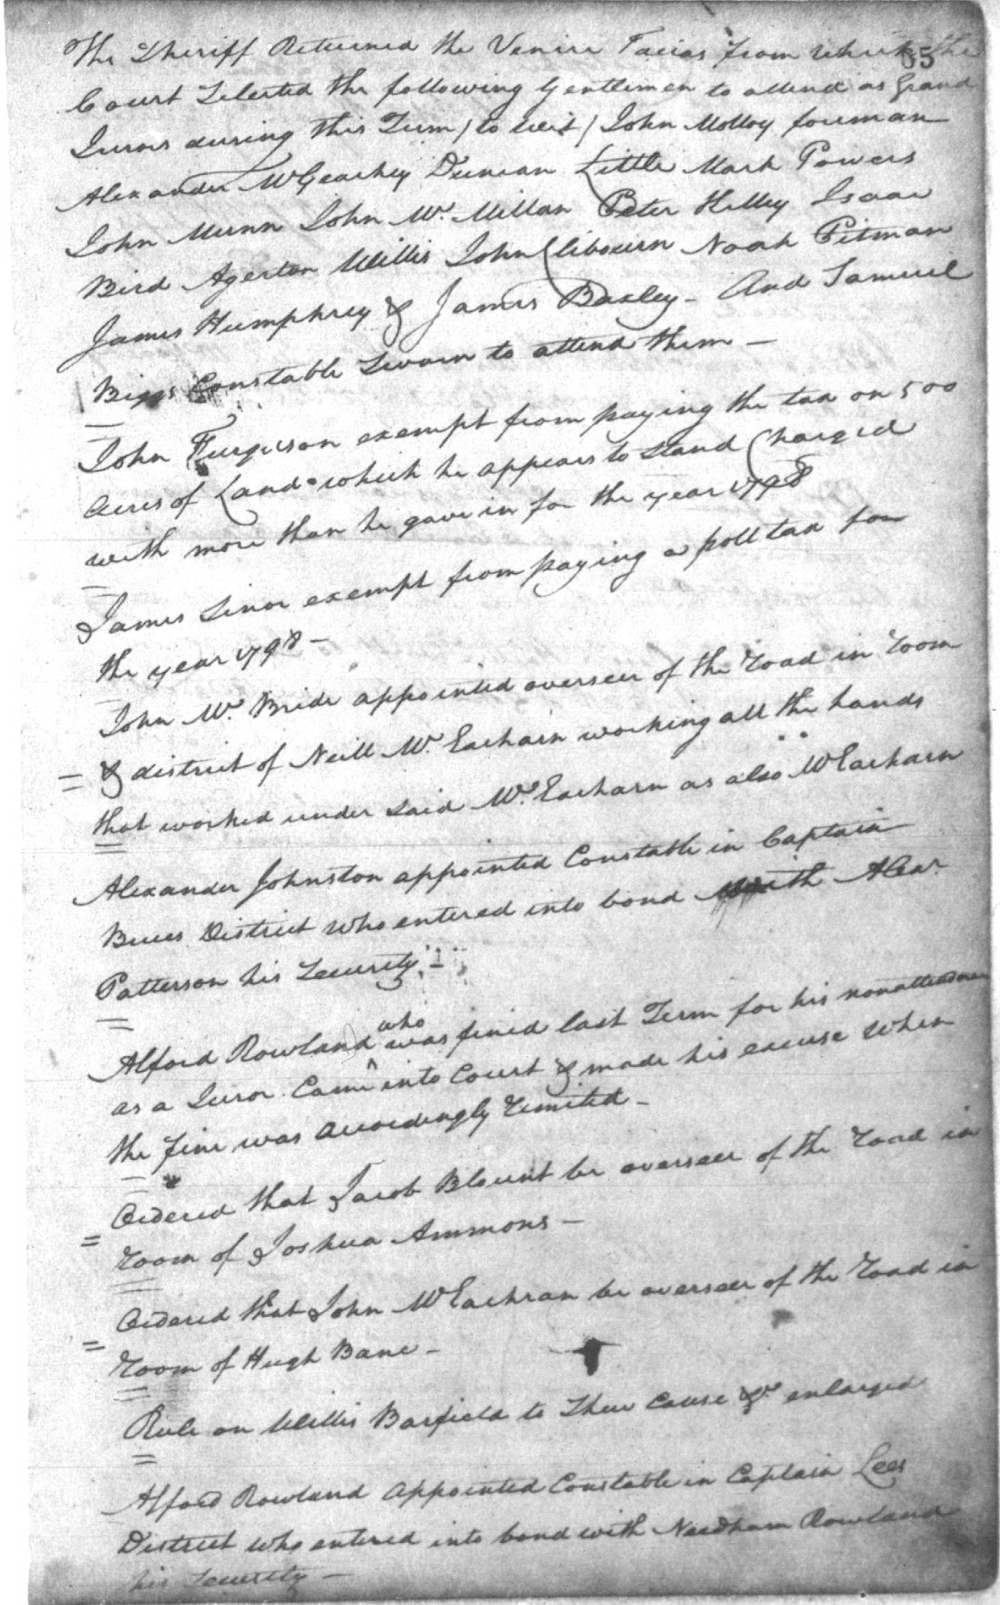 65
The Sheriff Returned the Venire Facias from which the
Court Selected the following Gentlemen to attend as Grand
Jurors during this Term (to wit) John Molloy foreman
Alexander McGeachey Duncan Little Mark Powers
John Munn John Mc. Millan Peter Hilley Isaac
Bird Agerton Willis John Clibourn Noah Pitman
James Humphrey & James Baxley - And Samuel
Biggs Constable Sworn to attend them -
John Furguson exempt from paying the tax on 500
Acres of Land which he appears to stand Charged
with more than he gave in for the year 1798
James Sinor exempt from paying a poll tax for
the year 1798 -
John Mc. Bride appointed overseer of the road in room
& district of Neill Mc. Eacharn working all the hands
that worked under said Mc. Eacharn as also McEacharn
Alexander Johnston appointed Constable in Captain
Buies District who entered into bond with Alexr.
Patterson his Security -
Alford Rowland who was fined last Term for his nonattendance
as a Juror Came into Court & made his excuse when
the fine was accordingly remitted -
Ordered that Jacob Blount be overseer of the road in
room of Joshua Ammons -
Ordered that John McEachran be overseer of the road in
room of Hugh Bane -
Rule on Willis Barfield to Shew Cause &c. enlarged
Alford Rowland Appointed Constable in Captain Lees
District who entered into bond with Needham Rowland
his Security -